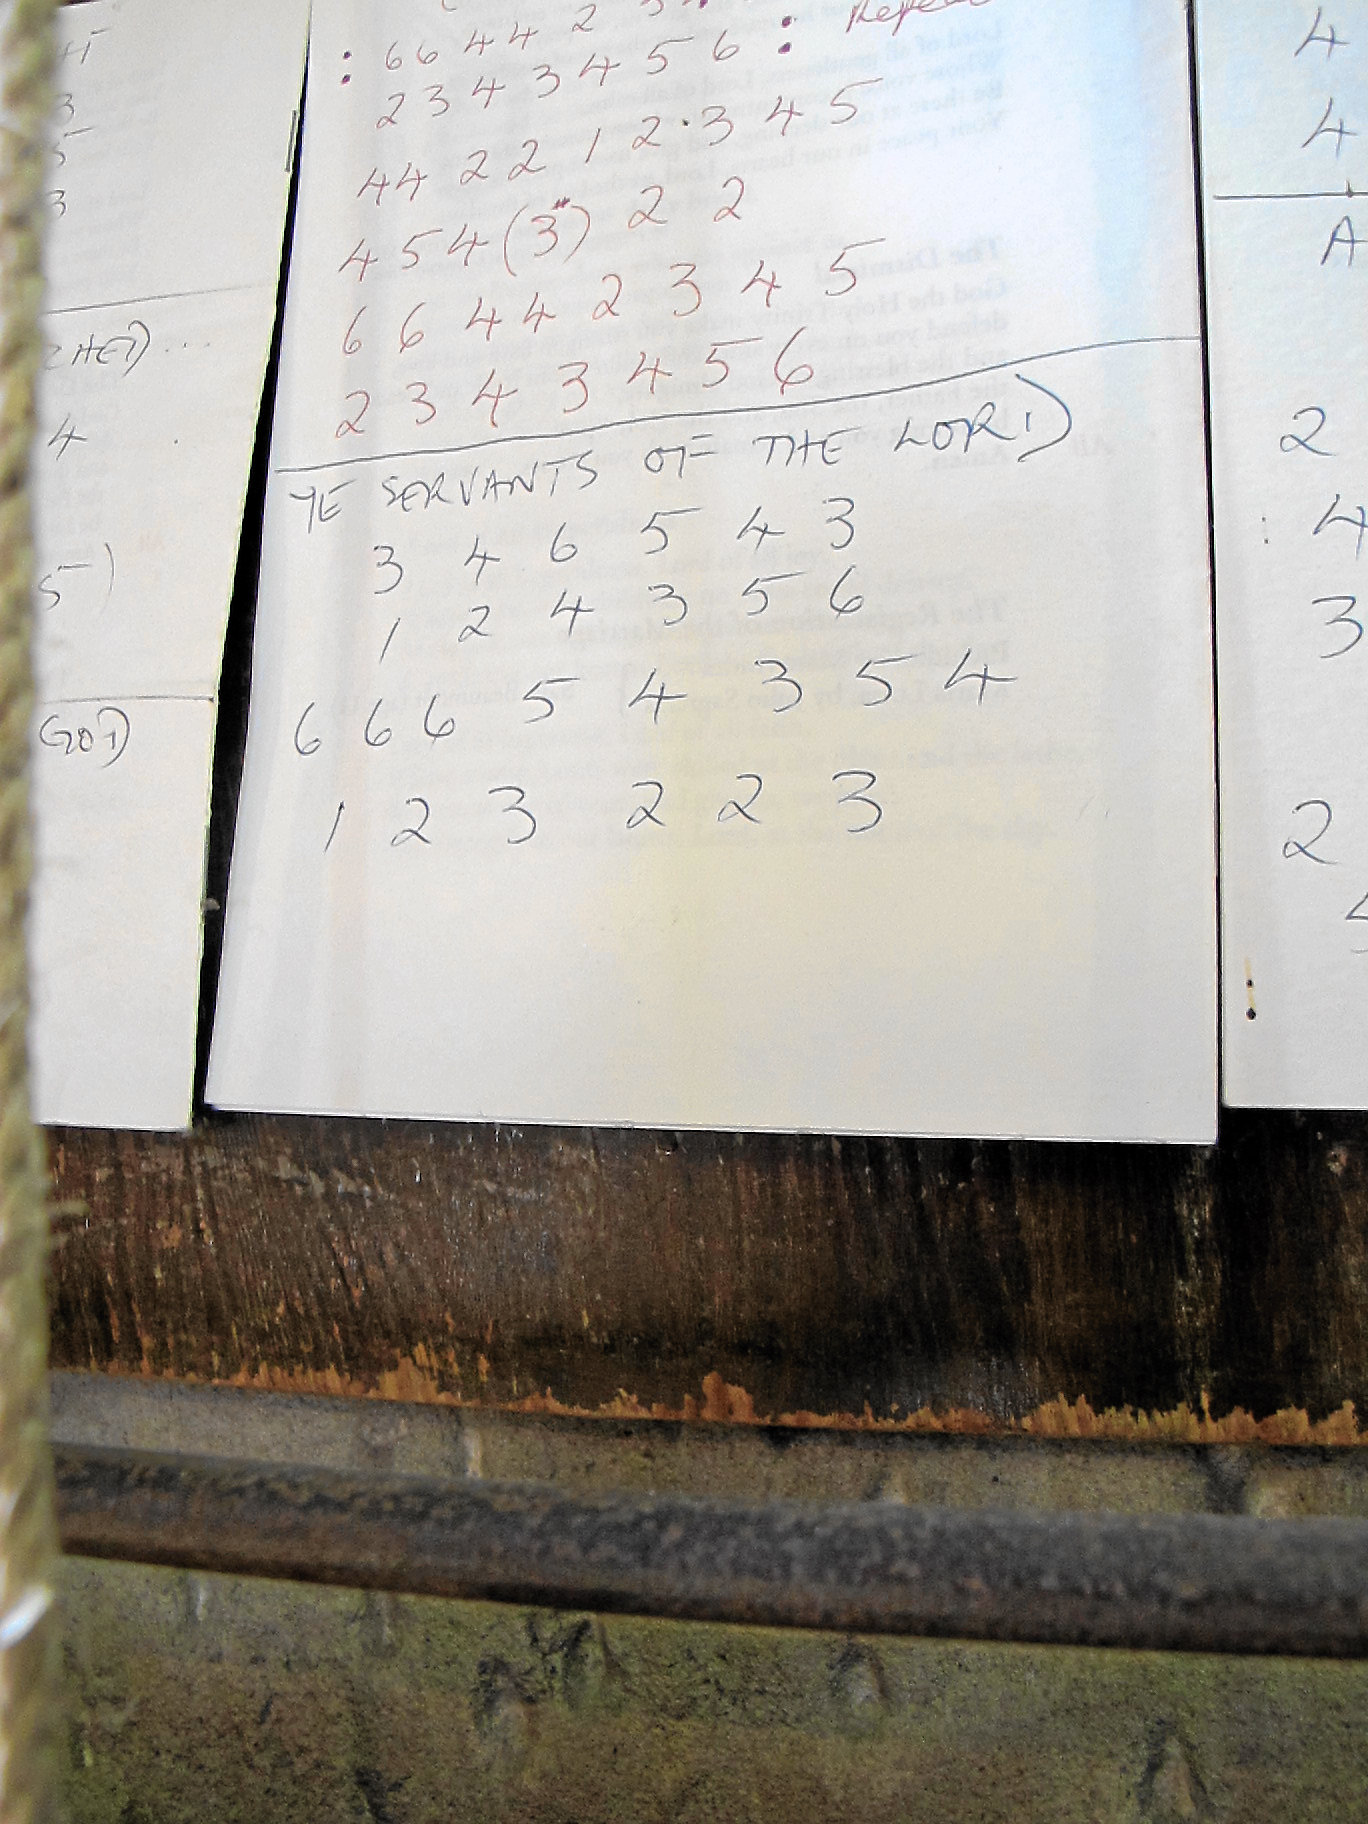 3
5
3
4
5)
GOD
: 6 6 4 4 2
2 3 4 3 4 5 6 : Repeat
4 4 2 2 1 2 · 3 4 5
4 5 4 (3#) 2 2
6 6 4 4 2 3 4 5
2 3 4 3 4 5 6
YE SERVANTS OF THE LORD
3 4 6 5 4 3
1 2 4 3 5 6
6 6 6 5 4 3 5 4
1 2 3 2 2 3
4
4
A
2
: 4
3
2